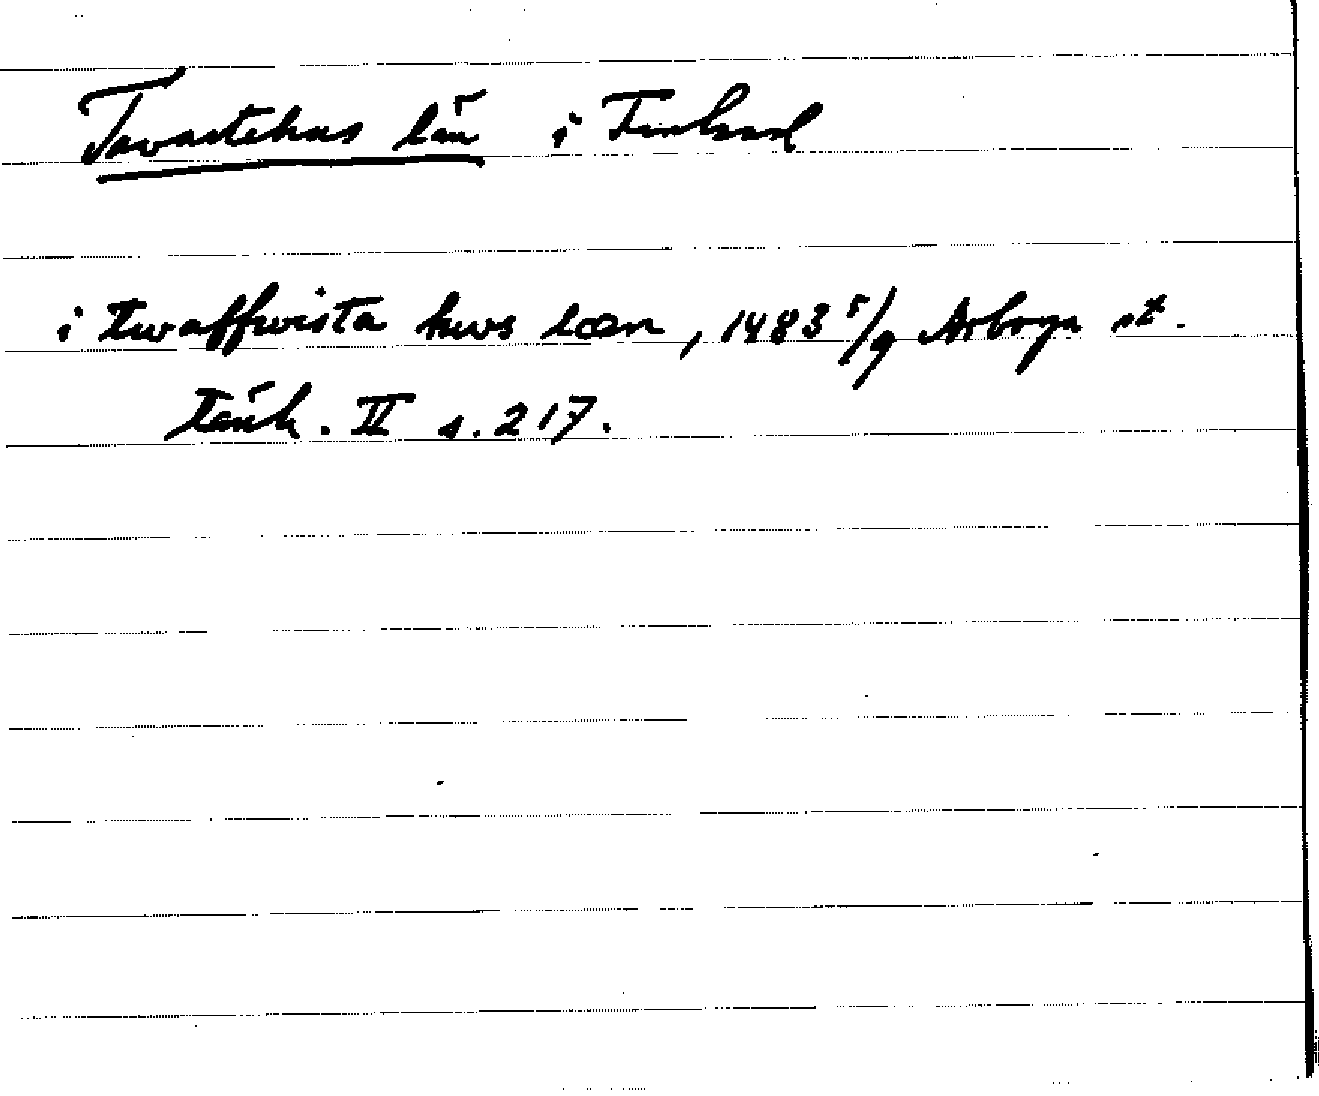 Tavastehus län i Finland
i twaffwista hws læn, 1483 5/9 Arboga st.
tänk. II s. 217.